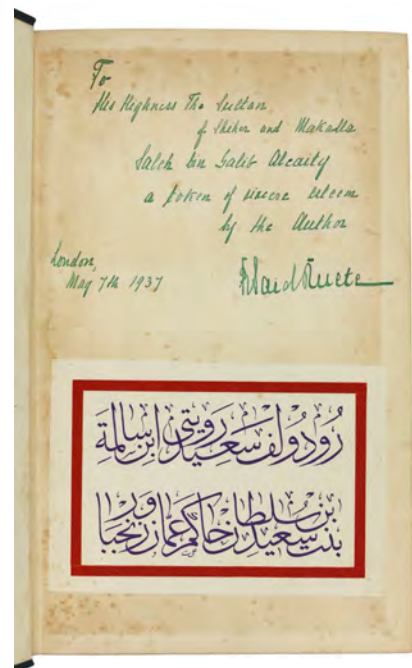 To
His Highness The Sultan
of Sheher and Makalla
Saleh bin Galib Alcaity
a token of sincere esteem
by the Author
London,
May 7th 1937
RSaidRuete
رُودُولف سَعِيد رويتى ابن سالمة
بنت سعيد بن سلطان حاكم عمان وزنجبار